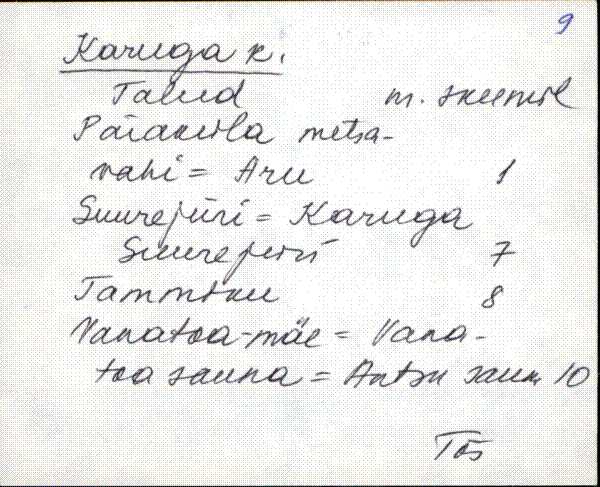 9
Karuga k.
Talud m. skeemil
Päraküla metsa-
vahi = Aru 1
Suurejüri = Karuga
Suurejüri 7
Tammiku 8
Vanatoa-mäe = Vana-
toa sauna = Antsu saun 10
Tõs